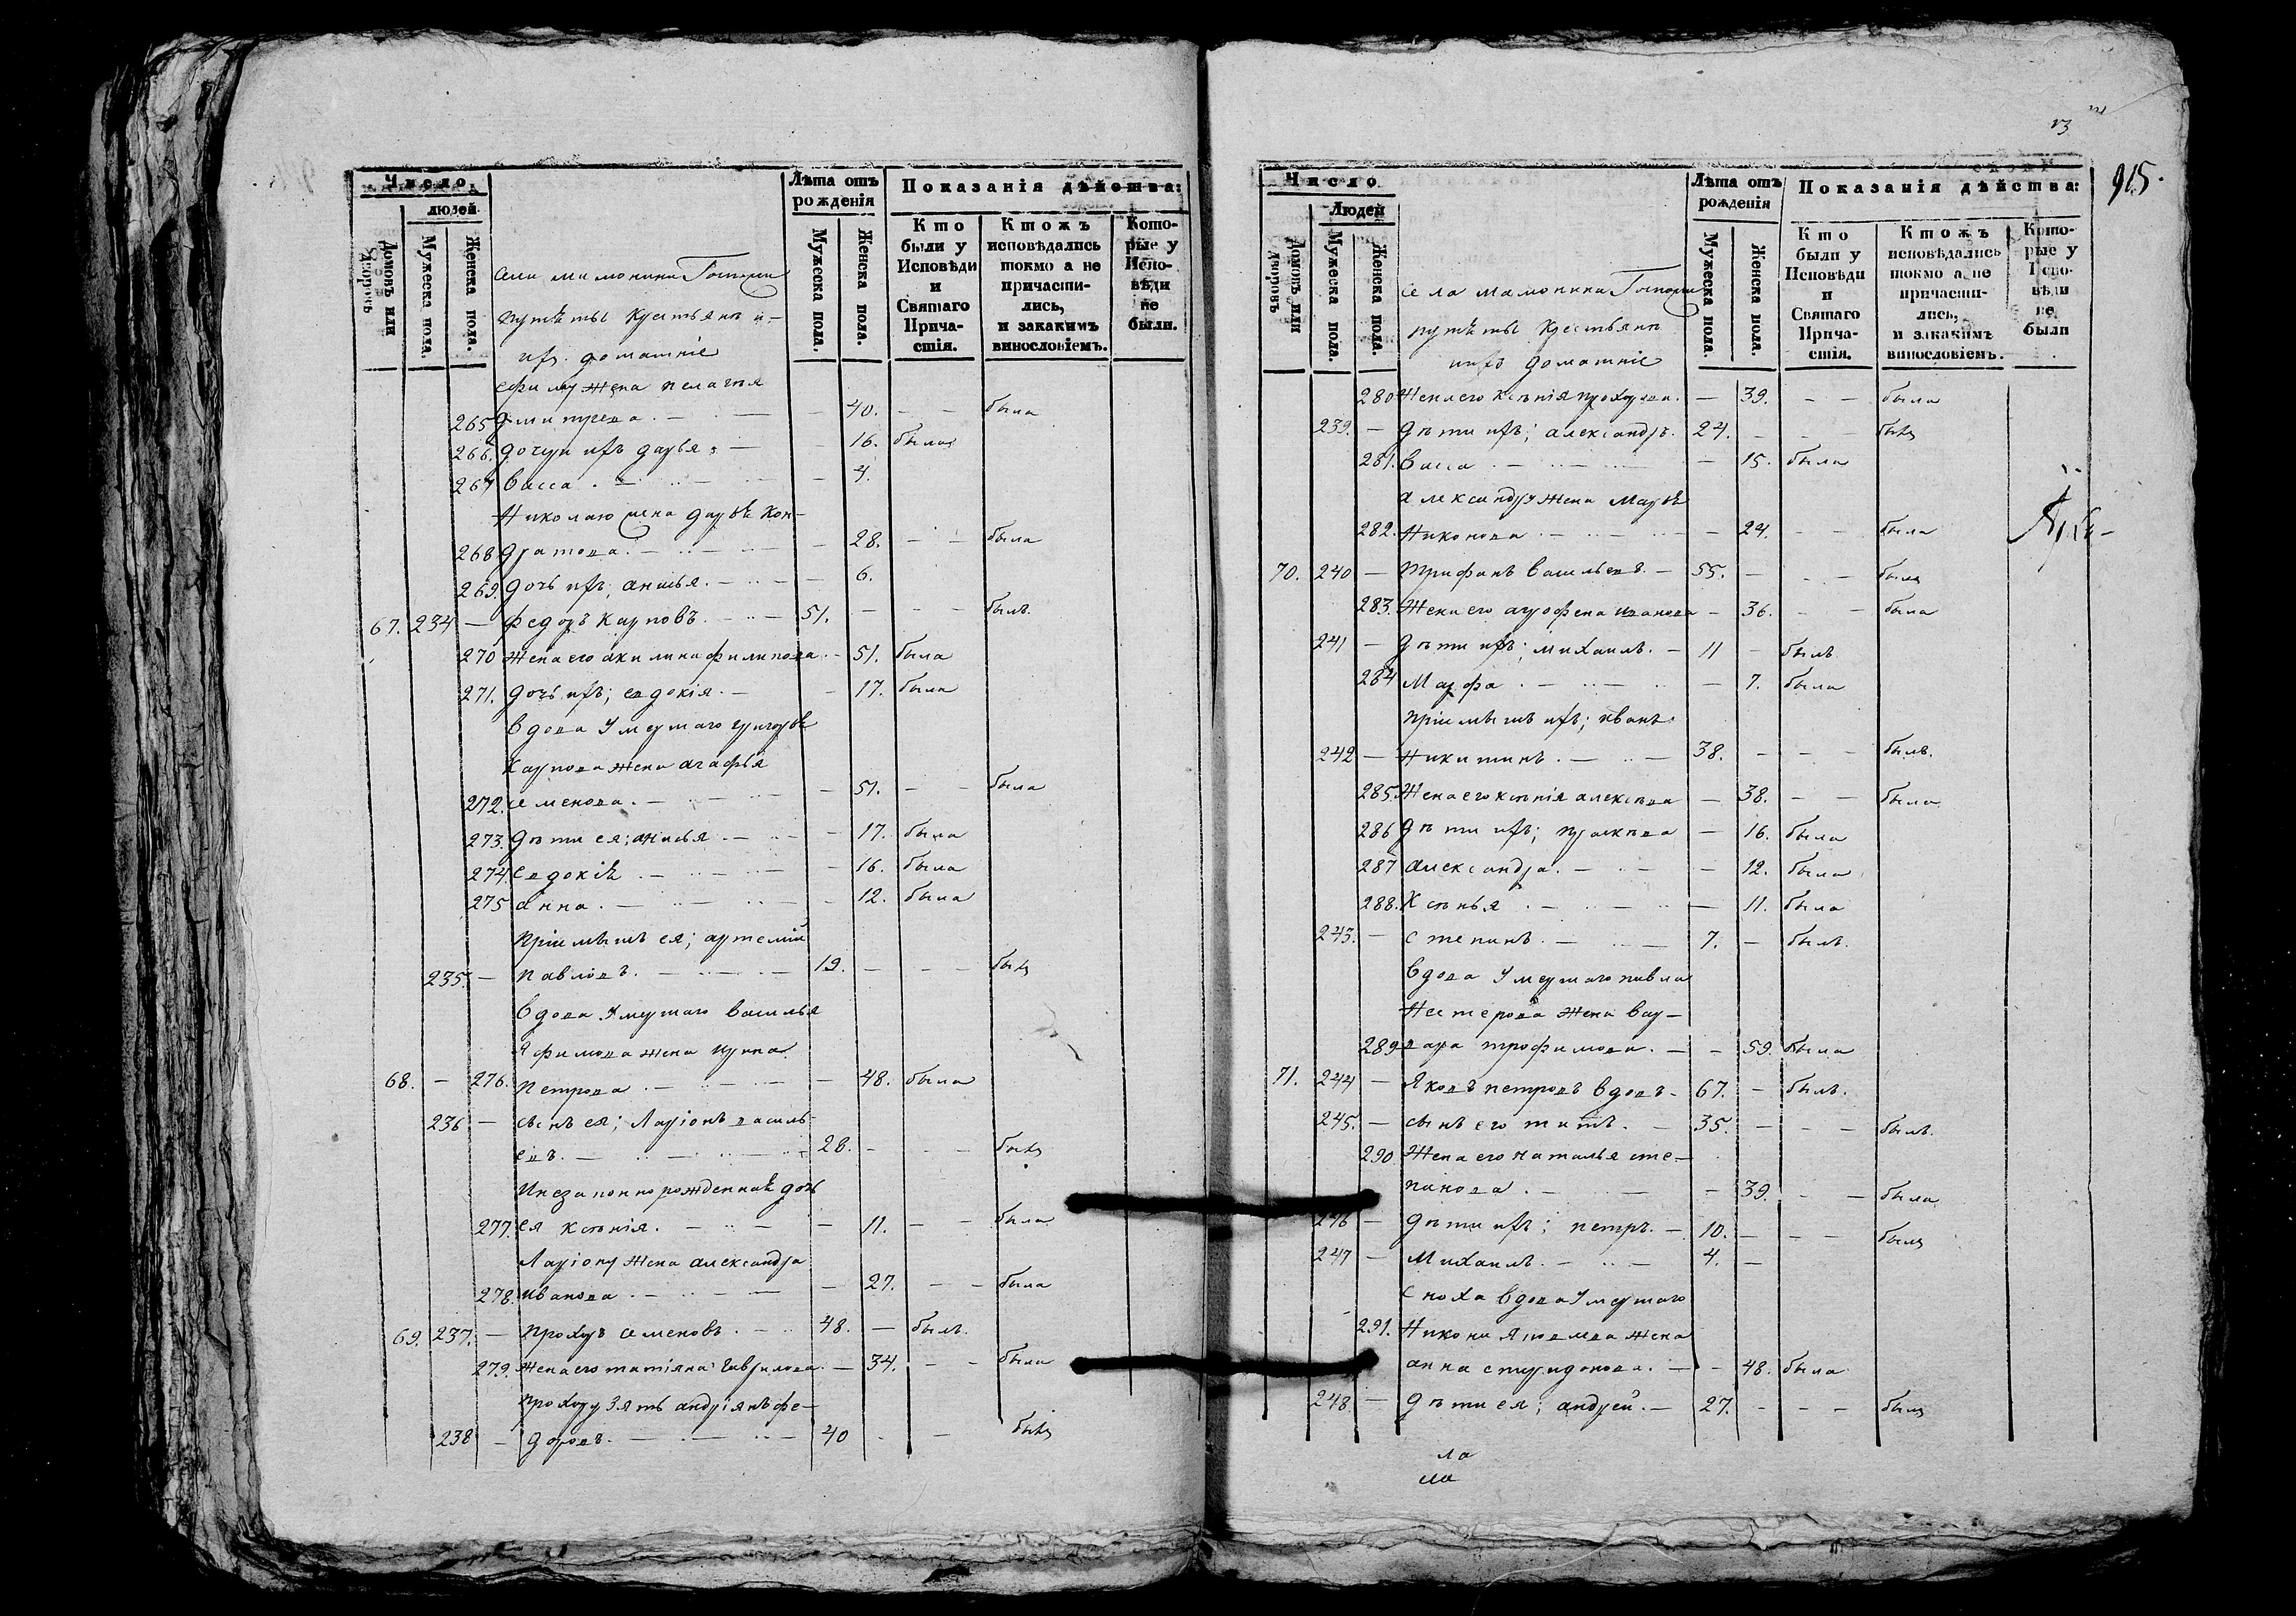 Число
людей
Домовъ или дворовъ
Мужеска пола.
Женска пола.
Лѣта отъ рожденія
Мужеска пола.
Женска пола.
Показанія дѣйства:
Кто были у Исповѣди и Святаго Причастія.
Ктожъ исповѣдались токмо а не причастились, и закакимъ винословіемъ.
Которые у Исповѣди не были.
крестьяне и
ихъ домашніе
ефиму жена пелагія
265 дмитрева. — — 40. — — была
266. дочери ихъ дарья. — 16. была
267 васса. — — 4.
Николаю жена дарья Кон-
268 дратова. — — 28. — — была
269. дочь ихъ; анисья. — — 6.
67. 234 — федоръ Карповъ. — 51. — — — былъ.
270 жена его акилина филипова. — 51. была
271. дочь ихъ; евдокія. — — 17. была
вдова умершаго григорья
Карпова жена агафья
272. семенова. — — 51. — — была
273. дѣти ея; анисья — — 17. была
274. евдокія. — — 16. была
275 анна. — — 12. была
пріимышъ ея; артемій
235. — павловъ. — 19. — — — былъ
вдова умершаго василья
Яфимова жена ирина
68. — 276. петрова. — — 48. была
236 — сынъ ея; Ларіонъ василь-
евъ. — 28. — — — былъ
И незаконнорожденная дочь
277. ея ксенія. — — 11. — — была
Ларіону жена александра
278. иванова. — — 27. — — была
69. 237. — прохоръ семеновъ. — 48. — былъ.
279. жена его татіяна гаврилова. — 34. — — была
прохору зять андріянъ фе-
238 — доровъ. — 40 — — былъ
915.
Число
Людей
Домовъ или дворовъ
Мужеска пола.
Женска пола.
Лѣта отъ рожденія
Мужеска пола.
Женска пола.
Показанія дѣйства:
Кто были у Исповѣди и Святаго Причастія.
Ктожъ исповѣдались токмо а не причастились, и закакимъ винословіемъ.
Которые у Исповѣди не были
села мамонина
крестьяне
ихъ домашніе
280 жена его ксенія прохорова. — 39. — — была
239. — дѣти ихъ; александръ. 24. — — — былъ
281. васса. — — 15. была
александру жена марья
282. Никонова. — — 24. — — была
70. 240 — трифанъ васильевъ. — 55. — — — былъ
283. жена его агрофена иванова — 36. — — была
241 — дѣти ихъ; михаилъ. — 11 — былъ
284 Марфа. — — 7. была
пріимышъ ихъ; иванъ
242 — Никитинъ. — 38. — — — былъ.
285. жена его ксенія алексѣева — 38. — — была
286 дѣти ихъ; прасковья — 16. была
287 александра. — — 12. была
288. Ксенья. — — 11. была
243. — степанъ. — 7. — былъ.
вдова умершаго павла
Нестерова жена вар-
289 вара трофимова. — — 59. была
71. 244 — Яковъ петровъ вдовъ — 67. — былъ.
245. — сынъ его титъ. — 35. — — — былъ.
290 жена его наталья сте-
панова. — — 39. — — была
246 — дѣти ихъ; петръ. — 10. — — — былъ
247 — Михаилъ. — 4. —
сноха вдова умершаго
291. Никона Яковлева жена
анна спиридонова. — — 48. была
248 — дѣти ея; андрей. — 27. — — — былъ